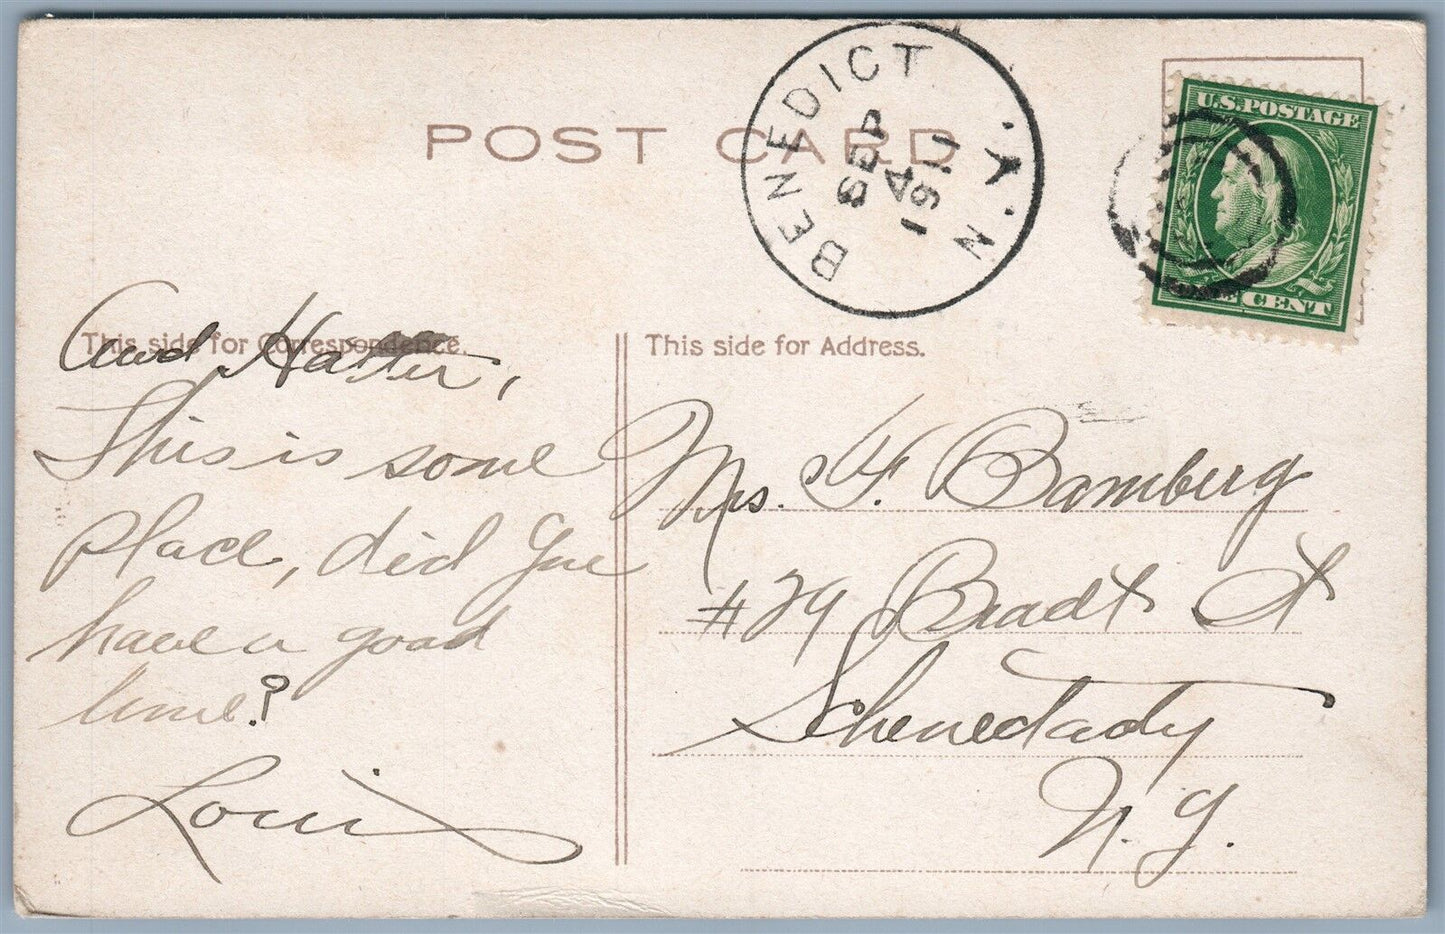 POST CARD
BENEDICT N.Y.
SEP
4
1911
U.S.POSTAGE
CENT
This side for Correspondence.
This side for Address.
Hatter,
This is some
place, did you
have a good
time?
Louis
Mrs. F. Bamberg
#29 Bradt St
Schenectady
N.Y.